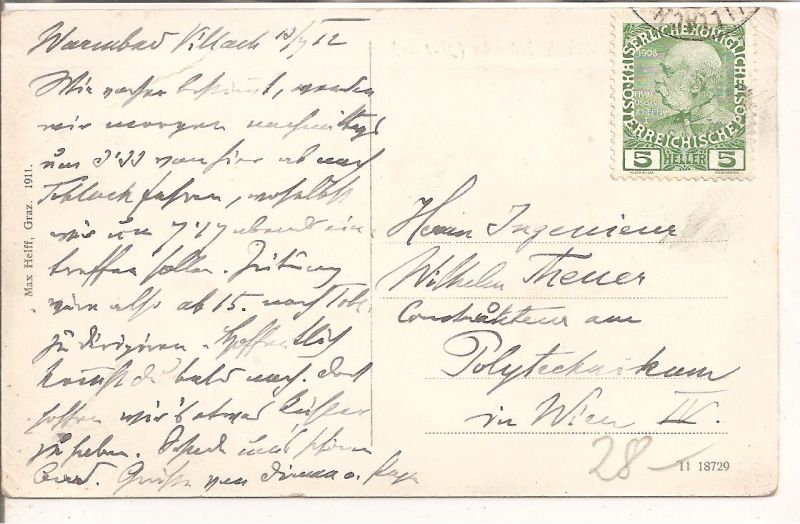 Warmbad Villach 13/7 12
Wie vorher bestimmt, werden
wir morgen nachmittags
um 3'33 von hier ab nach
Toblach fahren, woselbst
wir um 7'17 abends ein-
treffen sollen. Zeitung
wäre also ab 15. nach Tobl.
zu dirigieren. Hoffentlich
kommst du bald nach. Dort
hoffen wir's etwas kühler
zu haben.
Grüße von
Max Helff, Graz. 1911.
KAISERLICHE KÖNIGLICHE ÖSTERREICHISCHE POST
1908
FRANZ JOSEPH I
5 HELLER 5
VILLACH
Herrn Ingenieur
Wilhelm Theuer
Construkteur am
Polytechnikum
in Wien IV.
28-
11 18729